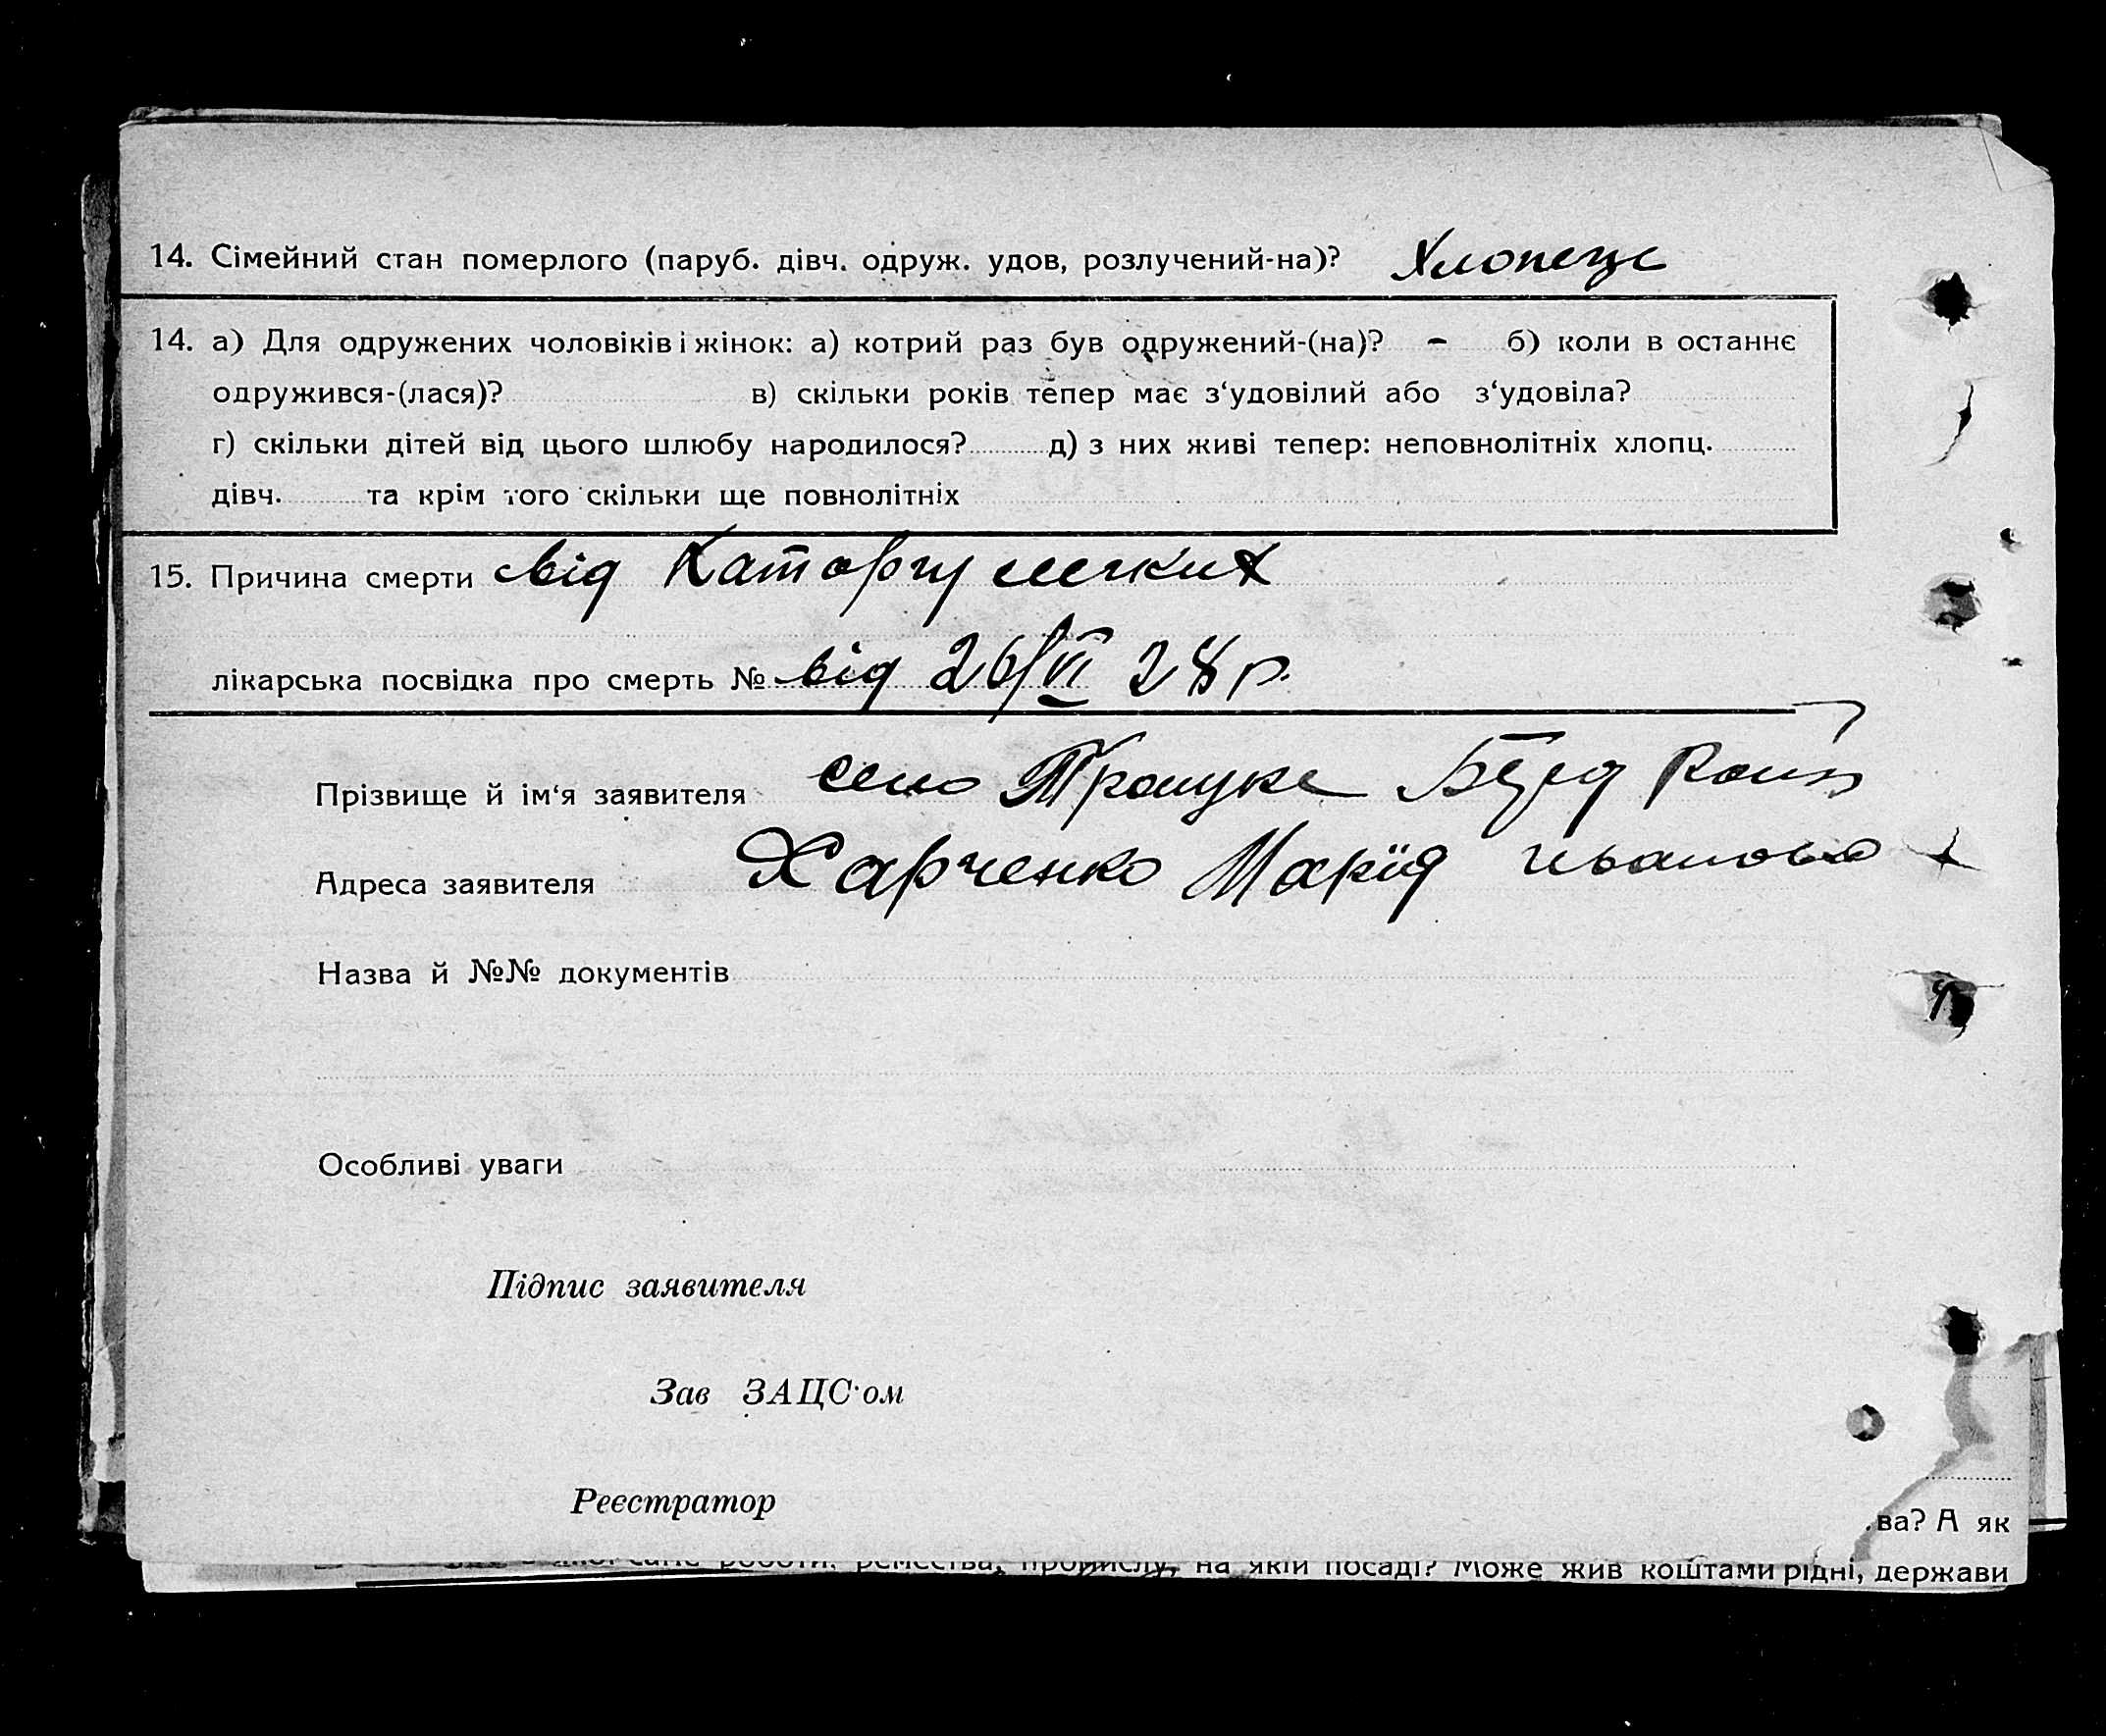 14. Сімейний стан померлого (паруб. дівч. одруж. удов, розлучений-на)? Хлопець
14. а) Для одружених чоловіків і жінок: а) котрий раз був одружений-(на)? - б) коли в останнє
одружився-(лася)? в) скільки років тепер має з‘удовілий або з‘удовіла?
г) скільки дітей від цього шлюбу народилося? д) з них живі тепер: неповнолітніх хлопц.
дівч. та крім того скільки ще повнолітніх
15. Причина смерти від Катару легких
лікарська посвідка про смерть № від 26/VI 28 р.
Прізвище й ім‘я заявителя село Троцьке
Адреса заявителя Харченко Марія
Назва й №№ документів
Особливі уваги
Підпис заявителя
Зав ЗАЦС‘ом
Реєстратор
ва? А як
роботи, ремества, промислу, на якій посаді? Може жив коштами рідні, держави